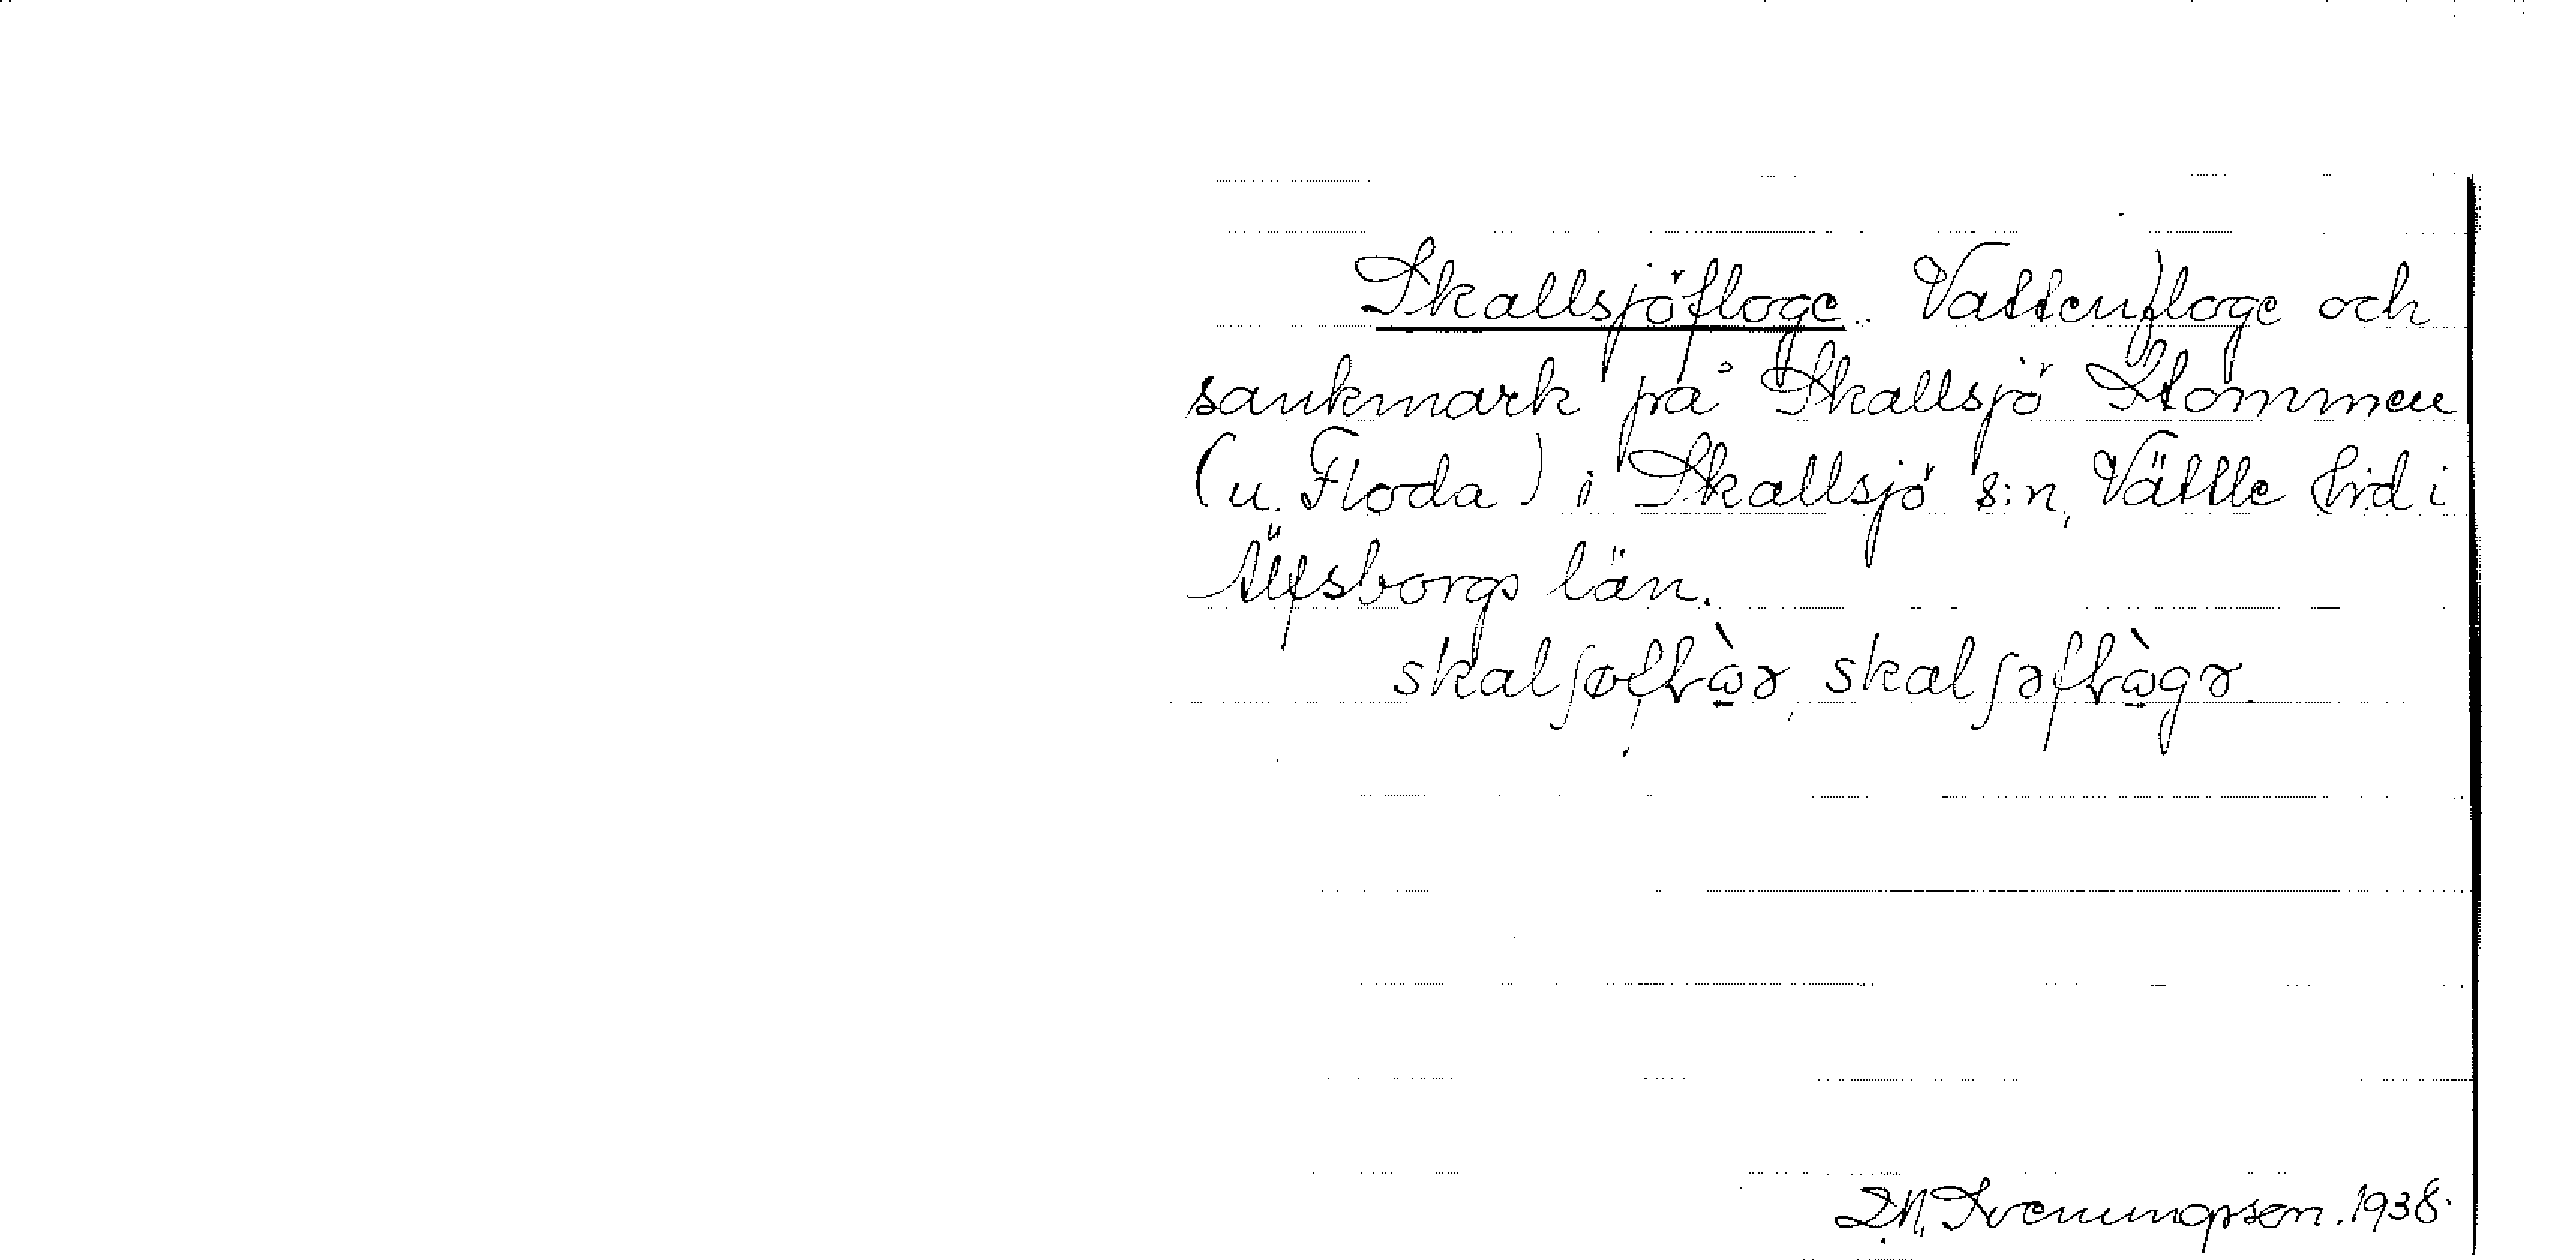 Skallsjöfloge. Vattenfloge och
sankmark på Skallsjö Stommen
(u. Floda) i Skallsjö s:n, Vättle hd i
Älfsborgs län.
skalʃøfꝆὼə, skalʃəfꝆὼgə.
D.N. Svenungsson. 1938.